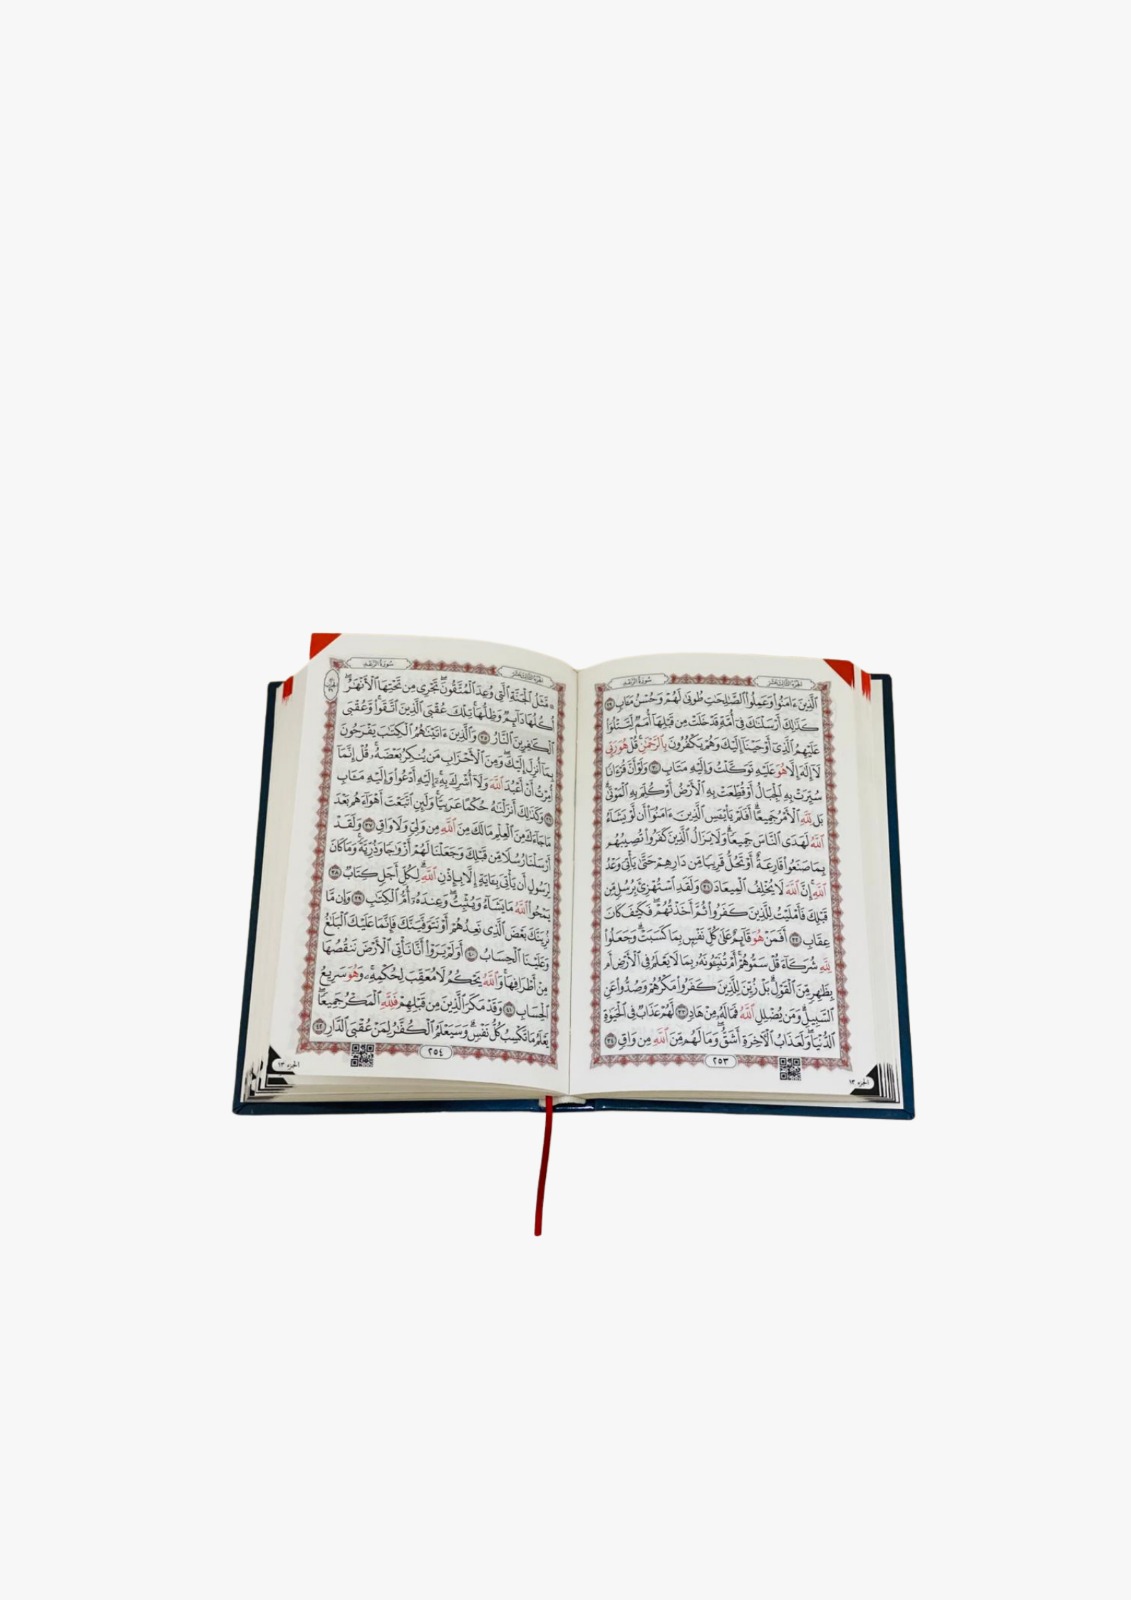 الجزء الثالث عشر
سورة الرعد
ٱلَّذِينَ ءَامَنُوا۟ وَعَمِلُوا۟ ٱلصَّـٰلِحَـٰتِ طُوبَىٰ لَهُمْ وَحُسْنُ مَـَٔابٍ ٢٩
كَذَٰلِكَ أَرْسَلْنَـٰكَ فِىٓ أُمَّةٍ قَدْ خَلَتْ مِن قَبْلِهَآ أُمَمٌ لِّتَتْلُوَا۟
عَلَيْهِمُ ٱلَّذِىٓ أَوْحَيْنَآ إِلَيْكَ وَهُمْ يَكْفُرُونَ بِٱلرَّحْمَـٰنِ ۚ قُلْ هُوَ رَبِّى
لَآ إِلَـٰهَ إِلَّا هُوَ عَلَيْهِ تَوَكَّلْتُ وَإِلَيْهِ مَتَابِ ٣٠ وَلَوْ أَنَّ قُرْءَانًا
سُيِّرَتْ بِهِ ٱلْجِبَالُ أَوْ قُطِّعَتْ بِهِ ٱلْأَرْضُ أَوْ كُلِّمَ بِهِ ٱلْمَوْتَىٰ ۗ
بَل لِّلَّهِ ٱلْأَمْرُ جَمِيعًا ۗ أَفَلَمْ يَا۟يْـَٔسِ ٱلَّذِينَ ءَامَنُوٓا۟ أَن لَّوْ يَشَآءُ
ٱللَّهُ لَهَدَى ٱلنَّاسَ جَمِيعًا ۗ وَلَا يَزَالُ ٱلَّذِينَ كَفَرُوا۟ تُصِيبُهُم
بِمَا صَنَعُوا۟ قَارِعَةٌ أَوْ تَحُلُّ قَرِيبًا مِّن دَارِهِمْ حَتَّىٰ يَأْتِىَ وَعْدُ
ٱللَّهِ ۚ إِنَّ ٱللَّهَ لَا يُخْلِفُ ٱلْمِيعَادَ ٣١ وَلَقَدِ ٱسْتُهْزِئَ بِرُسُلٍ مِّن
قَبْلِكَ فَأَمْلَيْتُ لِلَّذِينَ كَفَرُوا۟ ثُمَّ أَخَذْتُهُمْ ۖ فَكَيْفَ كَانَ
عِقَابِ ٣٢ أَفَمَنْ هُوَ قَآئِمٌ عَلَىٰ كُلِّ نَفْسٍۭ بِمَا كَسَبَتْ ۗ وَجَعَلُوا۟
لِلَّهِ شُرَكَآءَ قُلْ سَمُّوهُمْ ۚ أَمْ تُنَبِّـُٔونَهُۥ بِمَا لَا يَعْلَمُ فِى ٱلْأَرْضِ أَم
بِظَـٰهِرٍ مِّنَ ٱلْقَوْلِ ۗ بَلْ زُيِّنَ لِلَّذِينَ كَفَرُوا۟ مَكْرُهُمْ وَصُدُّوا۟ عَنِ
ٱلسَّبِيلِ ۗ وَمَن يُضْلِلِ ٱللَّهُ فَمَا لَهُۥ مِنْ هَادٍ ٣٣ لَّهُمْ عَذَابٌ فِى ٱلْحَيَوٰةِ
ٱلدُّنْيَا ۖ وَلَعَذَابُ ٱلْـَٔاخِرَةِ أَشَقُّ ۖ وَمَا لَهُم مِّنَ ٱللَّهِ مِن وَاقٍ ٣٤
٢٥٣
الجزء ١٣
الجزء الثالث عشر
سورة الرعد
۞ مَّثَلُ ٱلْجَنَّةِ ٱلَّتِى وُعِدَ ٱلْمُتَّقُونَ ۖ تَجْرِى مِن تَحْتِهَا ٱلْأَنْهَـٰرُ ۖ
أُكُلُهَا دَآئِمٌ وَظِلُّهَا ۚ تِلْكَ عُقْبَى ٱلَّذِينَ ٱتَّقَوا۟ ۖ وَّعُقْبَى
ٱلْكَـٰفِرِينَ ٱلنَّارُ ٣٥ وَٱلَّذِينَ ءَاتَيْنَـٰهُمُ ٱلْكِتَـٰبَ يَفْرَحُونَ
بِمَآ أُنزِلَ إِلَيْكَ ۖ وَمِنَ ٱلْأَحْزَابِ مَن يُنكِرُ بَعْضَهُۥ ۚ قُلْ إِنَّمَآ
أُمِرْتُ أَنْ أَعْبُدَ ٱللَّهَ وَلَآ أُشْرِكَ بِهِۦٓ ۚ إِلَيْهِ أَدْعُوا۟ وَإِلَيْهِ مَـَٔابِ
٣٦ وَكَذَٰلِكَ أَنزَلْنَـٰهُ حُكْمًا عَرَبِيًّا ۚ وَلَئِنِ ٱتَّبَعْتَ أَهْوَآءَهُم بَعْدَ
مَا جَآءَكَ مِنَ ٱلْعِلْمِ مَا لَكَ مِنَ ٱللَّهِ مِن وَلِىٍّ وَلَا وَاقٍ ٣٧ وَلَقَدْ
أَرْسَلْنَا رُسُلًا مِّن قَبْلِكَ وَجَعَلْنَا لَهُمْ أَزْوَٰجًا وَذُرِّيَّةً ۚ وَمَا كَانَ
لِرَسُولٍ أَن يَأْتِىَ بِـَٔايَةٍ إِلَّا بِإِذْنِ ٱللَّهِ ۗ لِكُلِّ أَجَلٍ كِتَابٌ ٣٨
يَمْحُوا۟ ٱللَّهُ مَا يَشَآءُ وَيُثْبِتُ ۖ وَعِندَهُۥٓ أُمُّ ٱلْكِتَـٰبِ ٣٩ وَإِن مَّا
نُرِيَنَّكَ بَعْضَ ٱلَّذِى نَعِدُهُمْ أَوْ نَتَوَفَّيَنَّكَ فَإِنَّمَا عَلَيْكَ ٱلْبَلَـٰغُ
وَعَلَيْنَا ٱلْحِسَابُ ٤٠ أَوَلَمْ يَرَوْا۟ أَنَّا نَأْتِى ٱلْأَرْضَ نَنقُصُهَا
مِنْ أَطْرَافِهَا ۚ وَٱللَّهُ يَحْكُمُ لَا مُعَقِّبَ لِحُكْمِهِۦ ۚ وَهُوَ سَرِيعُ
ٱلْحِسَابِ ٤١ وَقَدْ مَكَرَ ٱلَّذِينَ مِن قَبْلِهِمْ فَلِلَّهِ ٱلْمَكْرُ جَمِيعًا ۖ
يَعْلَمُ مَا تَكْسِبُ كُلُّ نَفْسٍ ۗ وَسَيَعْلَمُ ٱلْكُفَّـٰرُ لِمَنْ عُقْبَى ٱلدَّارِ ٤٢
٢٥٤
الجزء ١٣